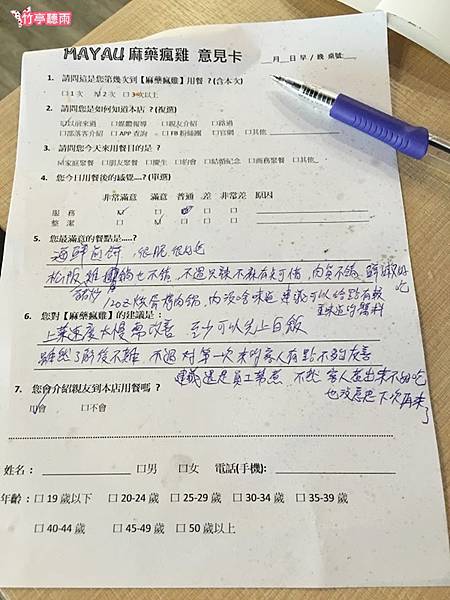 竹亭聽雨
MAYAU 麻藥瘋雞 意見卡
___月___日 早 / 晚 桌號___
1. 請問這是您第幾次到【麻藥瘋雞】用餐？(含本次)
□1 次 □2 次 □3 次以上
2. 請問您是如何知道本店？(複選)
□以前來過 □媒體報導 □親友介紹 □路過
□部落客介紹 □APP 查詢 □FB 粉絲團 □官網 □其他
3. 請問您今天來用餐目的是？
□家庭聚餐 □朋友聚餐 □慶生 □約會 □結婚紀念 □商務聚餐 □其他
4. 您今日用餐後的感覺…？(單選)
非常滿意 滿意 普通 差 非常差 原因
服 務 □ □ □ □ □
整 潔 □ □ □ □ □
5. 您最滿意的餐點是….？
海鮮煎餅，很脆、很好吃
松阪雞鍋也不錯，不過只辣不麻有點可惜，肉質不錯
部隊鍋
6. 您對【麻藥瘋雞】的建議是：
上菜速度太慢需改善 至少可以先上白飯
雖然了解後不難，不過對第一次來的客人有點不夠友善
建議還是員工幫煮，不然客人煮出來不好吃
也沒意思下次再來了
7. 您會介紹親友到本店用餐嗎？
□會 □不會
姓名： □男 □女 電話(手機):
年齡：□ 19 歲以下 □ 20-24 歲 □ 25-29 歲 □ 30-34 歲 □ 35-39 歲
□ 40-44 歲 □ 45-49 歲 □ 50 歲以上